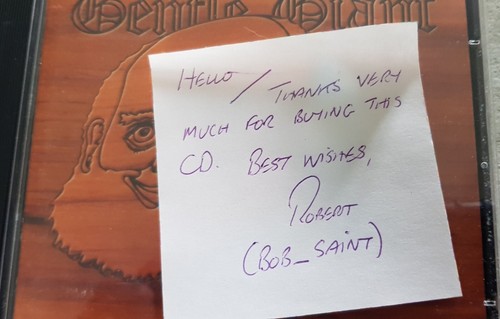 Gentle Giant
HELLO / THANKS VERY
MUCH FOR BUYING THIS
CD. BEST WISHES,
ROBERT
(BOB_SAINT)